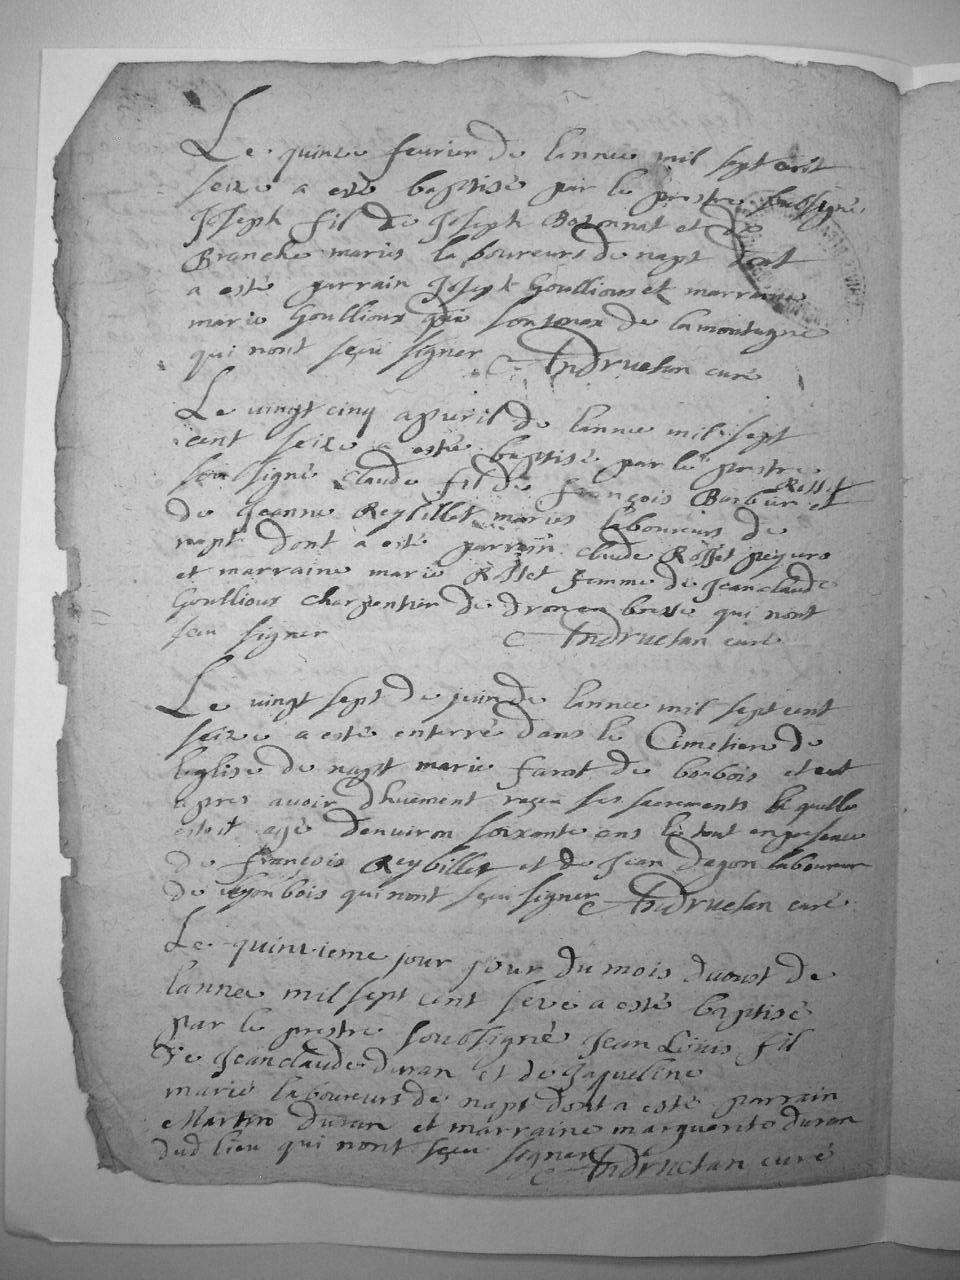 Le quinze feurier de lannee mil sept cent
seize a esté baptisé par le prestre soubsigné
Joseph fil de Joseph Bozonnat et de
Branche mariés laboureurs de napt dont
a esté parrain Joseph Goullioux et marraine
marie Goullioux de la montagne
qui nont sceu signer Andruetan curé
Le vingt cinq apuril de lannee mil sept
cent seize a esté baptisé par le prestre
soubsigné claude fil de françois Barbier Rosset et
de Jeanne Reybillet mariés laboureurs de
napt dont a esté parrain claude Rosset
et marraine marie Rosset femme de Jeanclaude
Goullioux charpentier de qui nont
sceu signer Andruetan curé
Le vingt sept de juin de lannee mil sept cent
seize a esté enterré dans le Cimetiere de
leglise de napt marie farat de bosbois et
apres auoir dhuement reçeu ses sacrements laquelle
estoit agé denuiron soixante ans le tout en presence
de françois Reybillet et de Jean dagon laboureur
de qui nont sceu signer Andruetan curé
Le quinzieme jour jour du mois daoust de
lannee mil sept cent seze a esté baptisé
par le prestre soubsigné Jean Louis fil
de Jeanclaude duran et de Jaqueline
marié laboureurs de napt dont a esté parrain
Martin duran et marraine marguerite duran
dud lieu qui nont sceu signer Andruetan curé